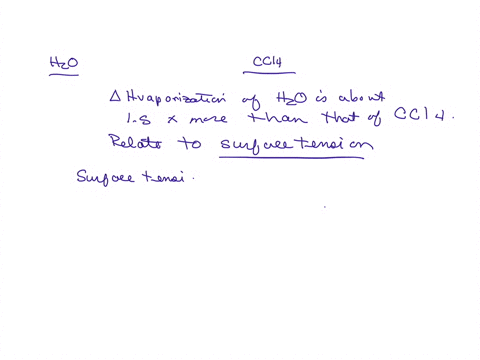 H2O CCl4
ΔHvaporization of H2O is about
1.5 x more than that of CCl4.
Relate to surface tension
Surface tensi